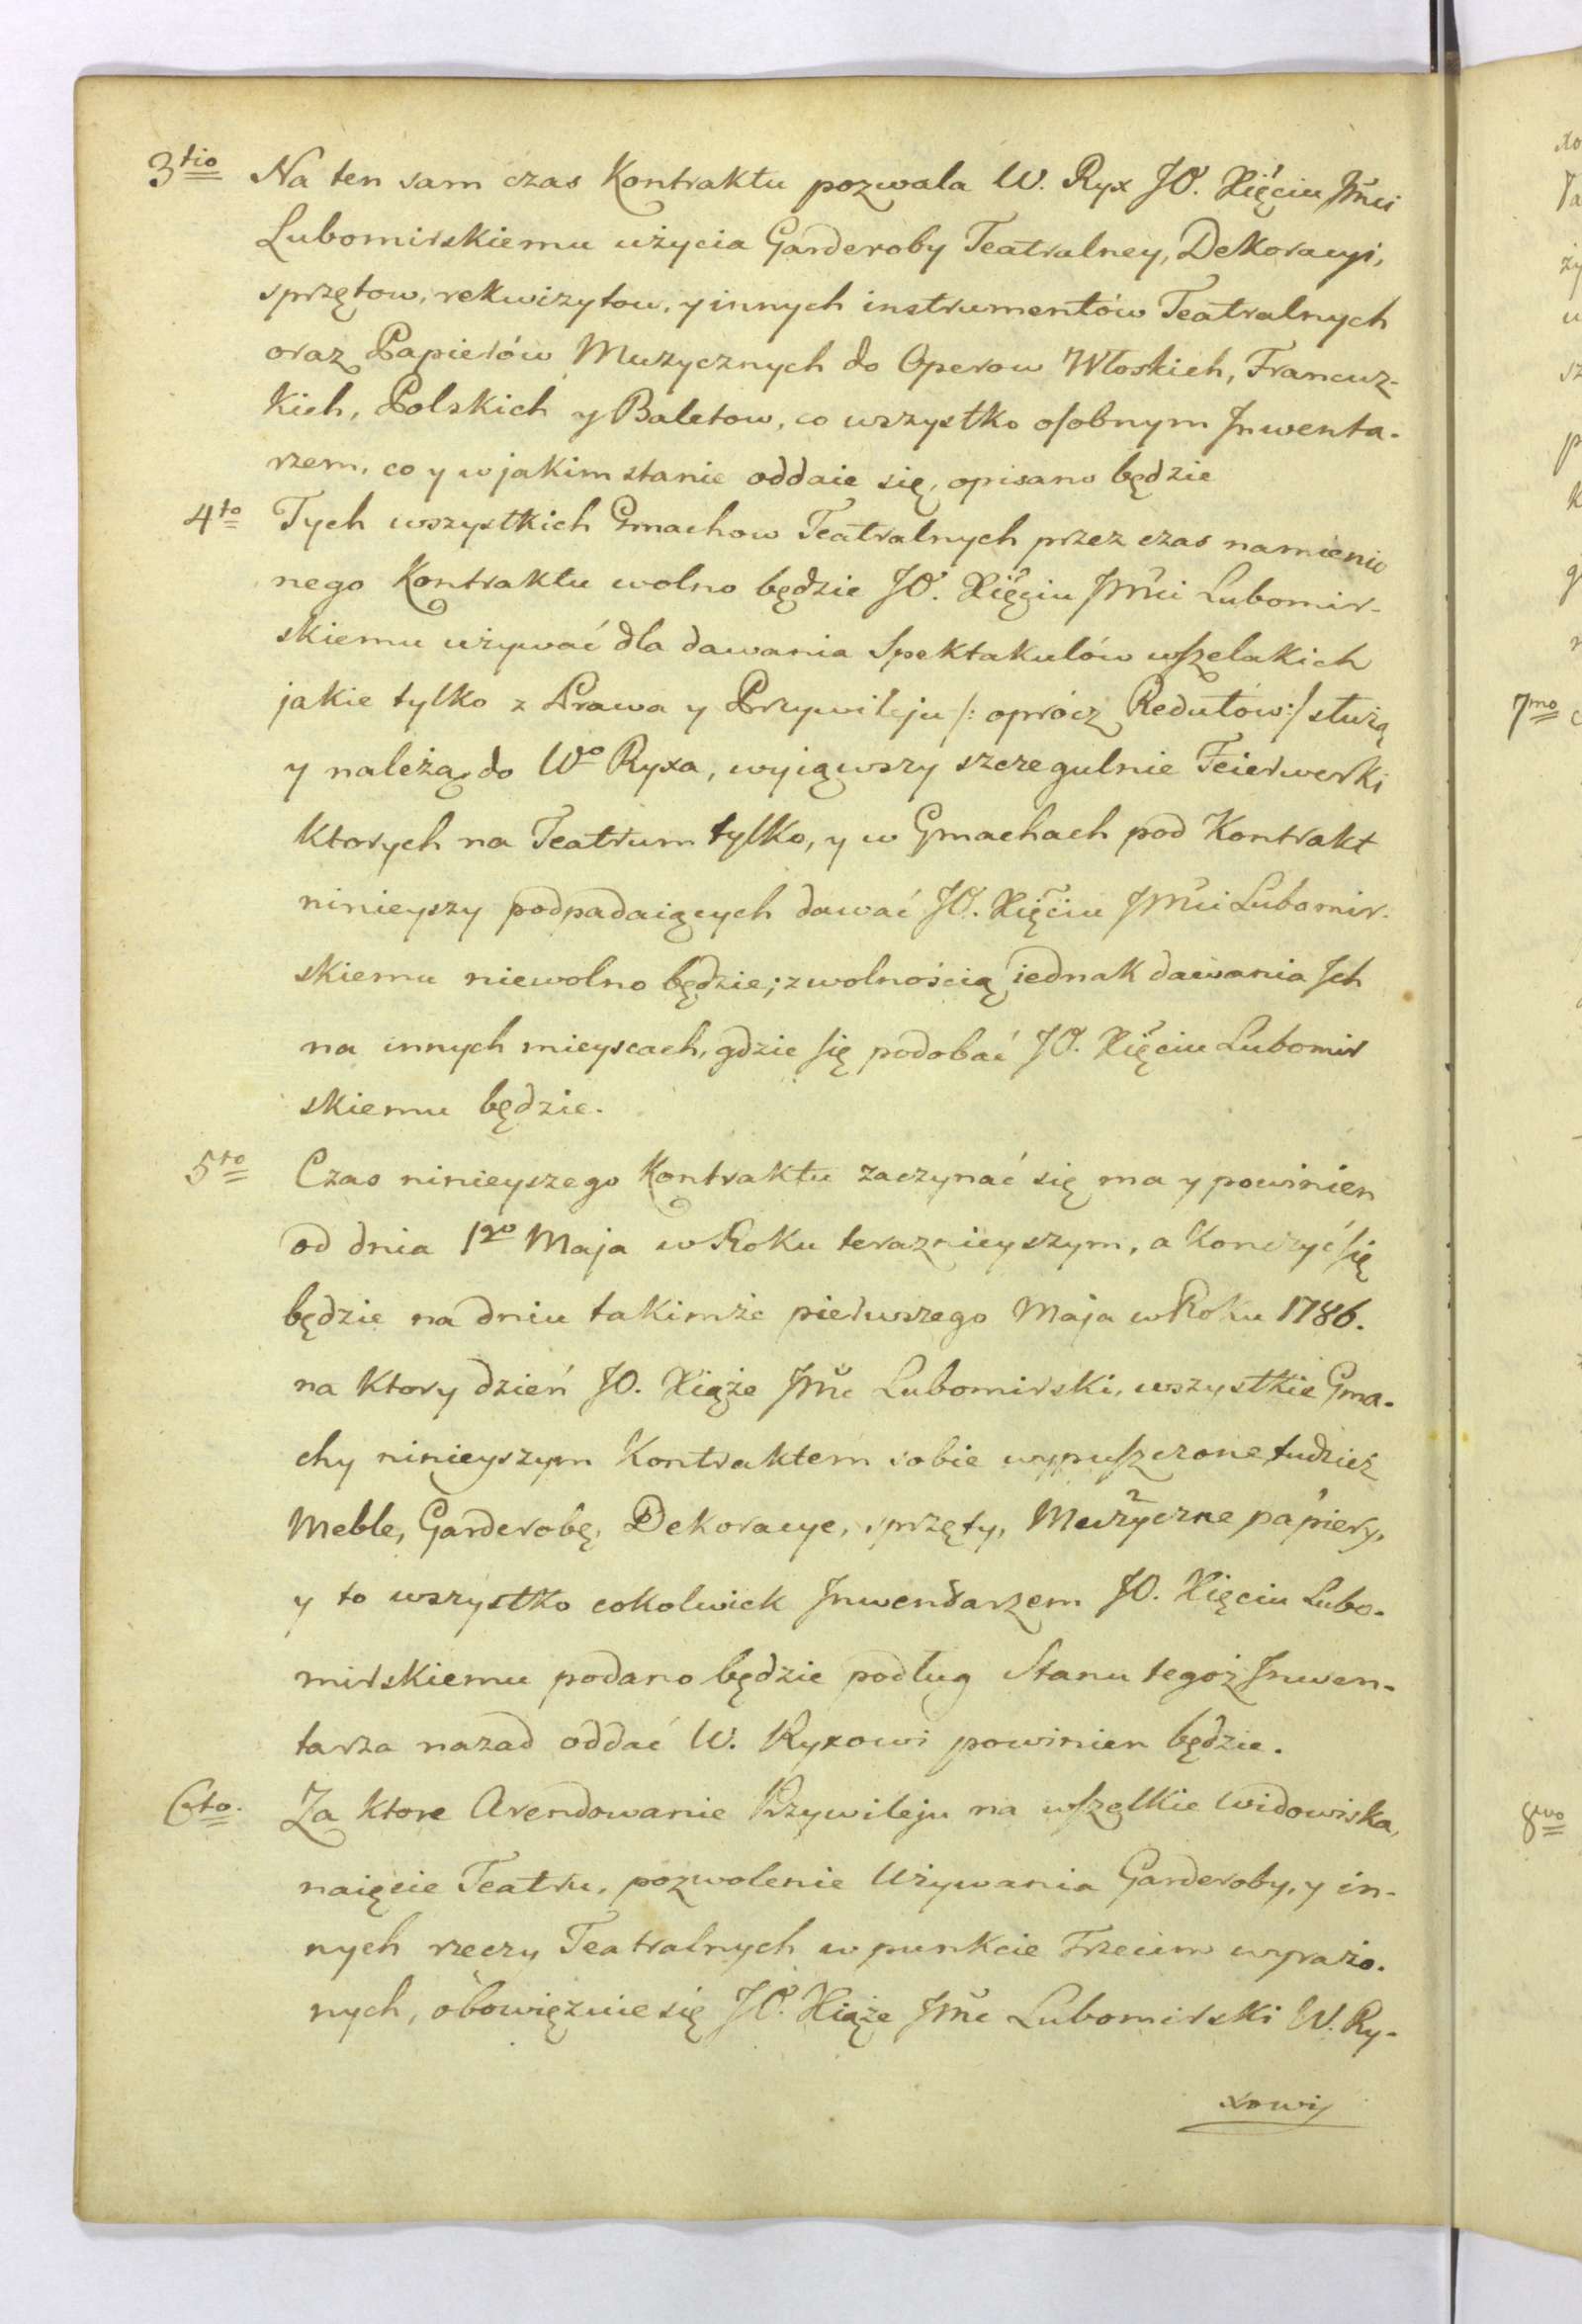 3tio Na ten sam czas Kontraktu pozwala W. Ryx JO. Xięciu Jmci
Lubomirskiemu użycia Garderoby Teatralney, Dekoracyi,
sprzętow, rekwizytow, y innych instrumentów Teatralnych
oraz Papierów Muzycznych do Operow Włoskich, Francuz-
kich, Polskich y Baletow, co wszystko osobnym Jnwenta-
rzem, co y w jakim stanie oddaie się, opisano będzie
4to Tych wszystkich Gmachow Teatralnych przez czas namienio
nego Kontraktu wolno będzie JO. Xięciu Jmci Lubomir-
skiemu używać dla dawania Spektakulów wszelakich
jakie tylko z Prawa y Przywileju /: oprócz Redutów :/ służą
y należą do Wo Ryxa, wyiąwszy szczegulnie Feierwerki
Ktorych na Teatrum tylko, y w Gmachach pod Kontrakt
ninieyszy podpadaiących dawać JO. Xięciu Jmci Lubomir-
skiemu niewolno będzie; z wolnością iednak dawania Jch
na innych mieyscach, gdzie się podobać JO. Xięciu Lubomir
skiemu będzie.
5to Czas ninieyszego Kontraktu zaczynać się ma y powinien
od dnia 1go Maja w Roku teraznieyszym, a Konczyć się
będzie na dniu takimże pierwszego Maja w Roku 1786.
na Ktory dzień JO. Xiąże Jmc Lubomirski, wszystkie Gma-
chy ninieyszym Kontraktem sobie wypuszczone tudzież
Meble, Garderobę, Dekoracye, sprzęty, Muzyczne papiery,
y to wszystko cokolwiek Jnwentarzem JO. Xięciu Lubo-
mirskiemu podano będzie podług Stanu tegoż Jnwen-
tarza nazad oddać W. Ryxowi powinien będzie.
6to. Za Ktore Arendowanie Przywileju na wszelkie Widowiska,
naięcie Teatru, pozwolenie Używania Garderoby, y in-
nych rzeczy Teatralnych w punkcie Trzecim wyrażo-
nych, obowięzuie się JO. Xiąże Jmc Lubomirski W. Ry-
xowi
7mo
8vo